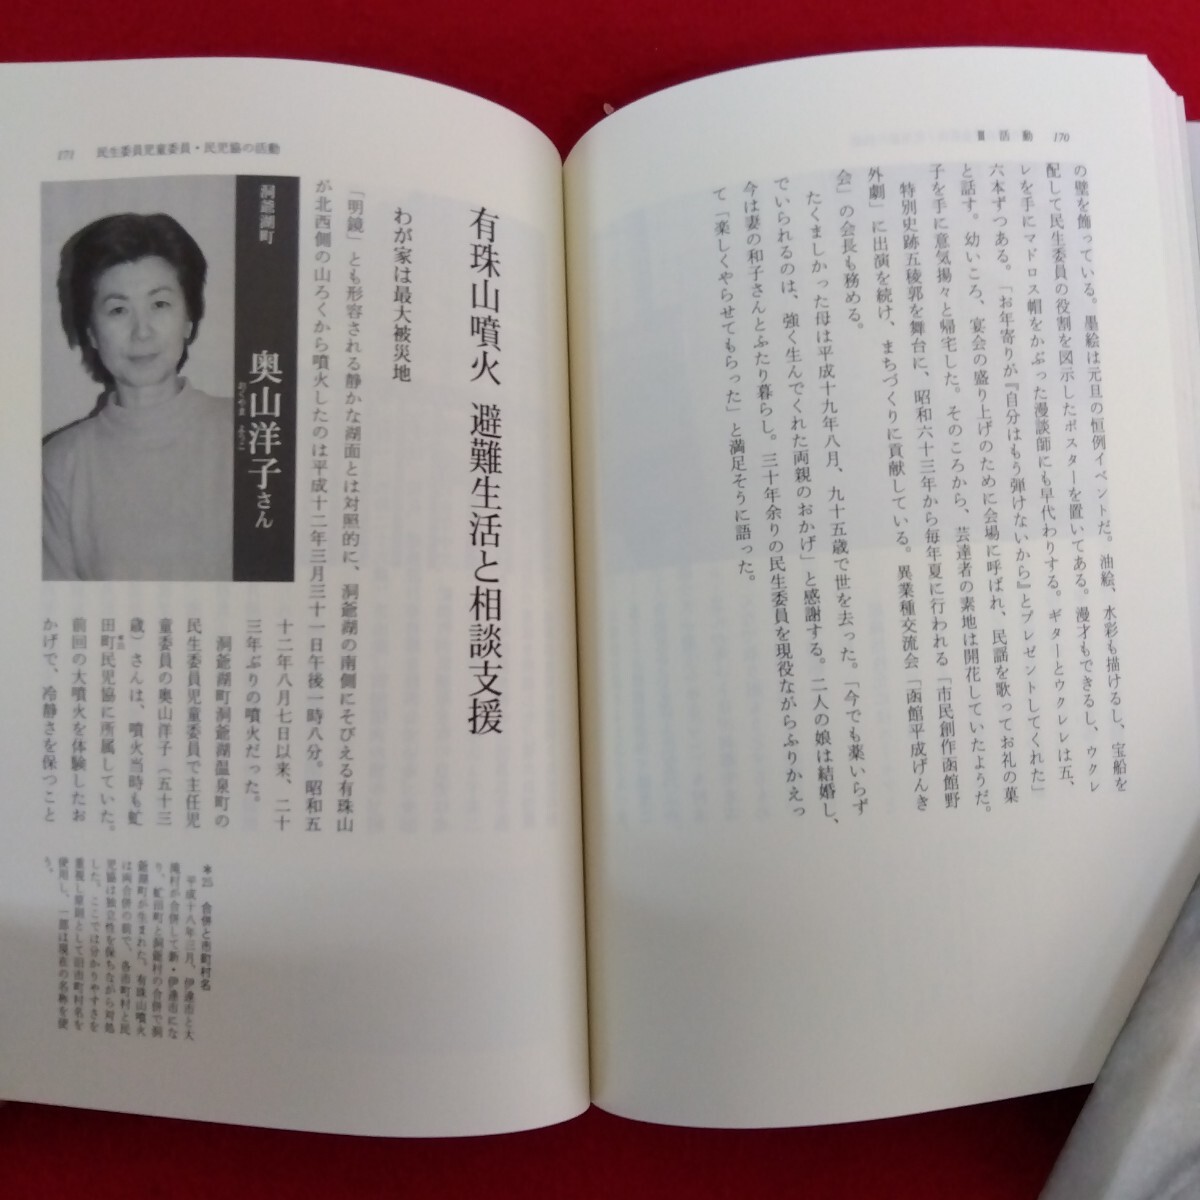 Ⅲ 活動 170
の壁を飾っている。墨絵は元旦の恒例イベントだ。油絵、水彩も描けるし、宝船を
配して民生委員の役割を図示したポスターを置いてある。漫才もできるし、ウクレ
レを手にマドロス帽をかぶった漫談師にも早代わりする。ギターとウクレレは五、
六本ずつある。「お年寄りが『自分はもう弾けないから』とプレゼントしてくれた」
と話す。幼いころ、宴会の盛り上げのために会場に呼ばれ、民謡を歌ってお礼の菓
子を手に意気揚々と帰宅した。そのころから、芸達者の素地は開花していたようだ。
特別史跡五稜郭を舞台に、昭和六十三年から毎年夏に行われる「市民創作函館野
外劇」に出演を続け、まちづくりに貢献している。異業種交流会「函館平成げんき
会」の会長も務める。
たくましかった母は平成十九年八月、九十五歳で世を去った。「今でも薬いらず
でいられるのは、強く生んでくれた両親のおかげ」と感謝する。二人の娘は結婚し、
今は妻の和子さんとふたり暮らし。三十年余りの民生委員を現役ながらふりかえっ
て「楽しくやらせてもらった」と満足そうに語った。
171 民生委員児童委員・民児協の活動
有珠山噴火 避難生活と相談支援
わが家は最大被災地
「明鏡」とも形容される静かな湖面とは対照的に、洞爺湖の南側にそびえる有珠山
が北西側の山ろくから噴火したのは平成十二年三月三十一日午後一時八分。昭和五
十二年八月七日以来、二十
三年ぶりの噴火だった。
洞爺湖町洞爺湖温泉町の
民生委員児童委員で主任児
童委員の奥山洋子（五十三
歳）さんは、噴火当時も虻
田町民児協に所属していた。
*25
前回の大噴火を体験したお
かげで、冷静さを保つこと
洞爺湖町
奥山洋子さん
おくやま ようこ
*25 合併と市町村名
平成十八年三月、伊達市と大
滝村が合併して新・伊達市にな
り、虻田町と洞爺村の合併で洞
爺湖町が生まれた。有珠山噴火
は両合併の前で、各市町村と民
児協は独立性を保ちながら対処
した。ここでは分かりやすさを
重視し原則として旧市町村名を
使用し、一部は現在の名称を使
う。